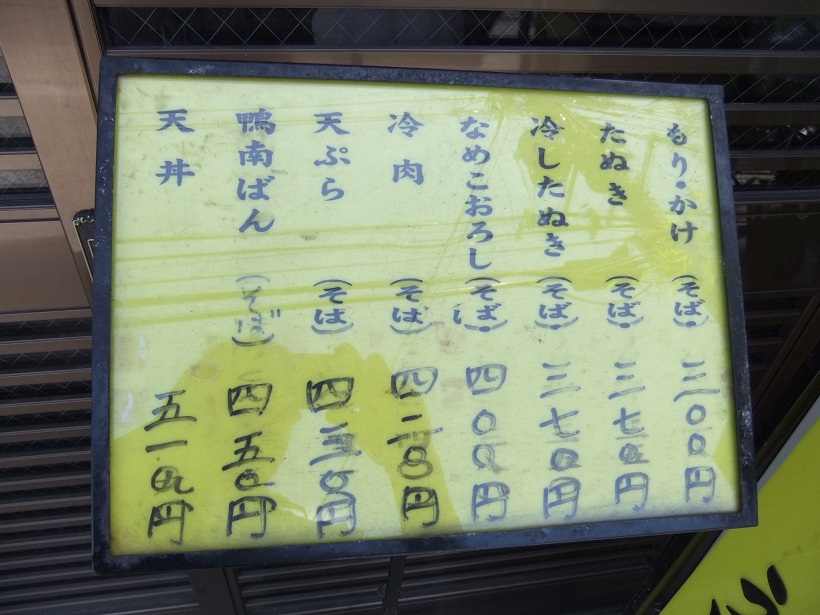 もり・かけ（そば）三〇〇円
たぬき（そば）三七〇円
冷したぬき（そば）三七〇円
なめこおろし（そば）四〇〇円
冷肉（そば）四二〇円
天ぷら（そば）四三〇円
鴨南ばん（そば）四五〇円
天丼 五一〇円